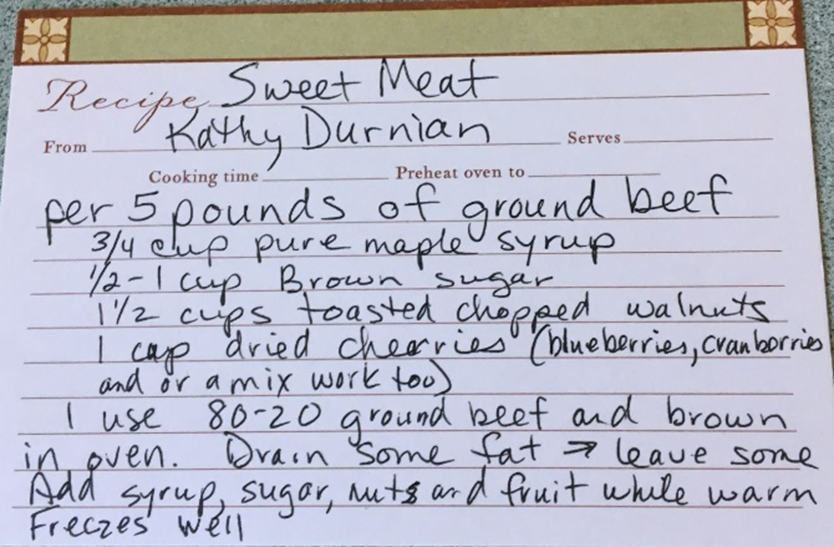 Recipe Sweet Meat
From Kathy Durnian Serves
Cooking time Preheat oven to
per 5 pounds of ground beef
3/4 cup pure maple syrup
1/2-1 cup Brown sugar
1 1/2 cups toasted chopped walnuts
1 cup dried cherries (blueberries, cranborries
and or a mix work too)
I use 80-20 ground beef and brown
in oven. Drain some fat → leave some
Add syrup, sugar, nuts and fruit while warm
Freezes well